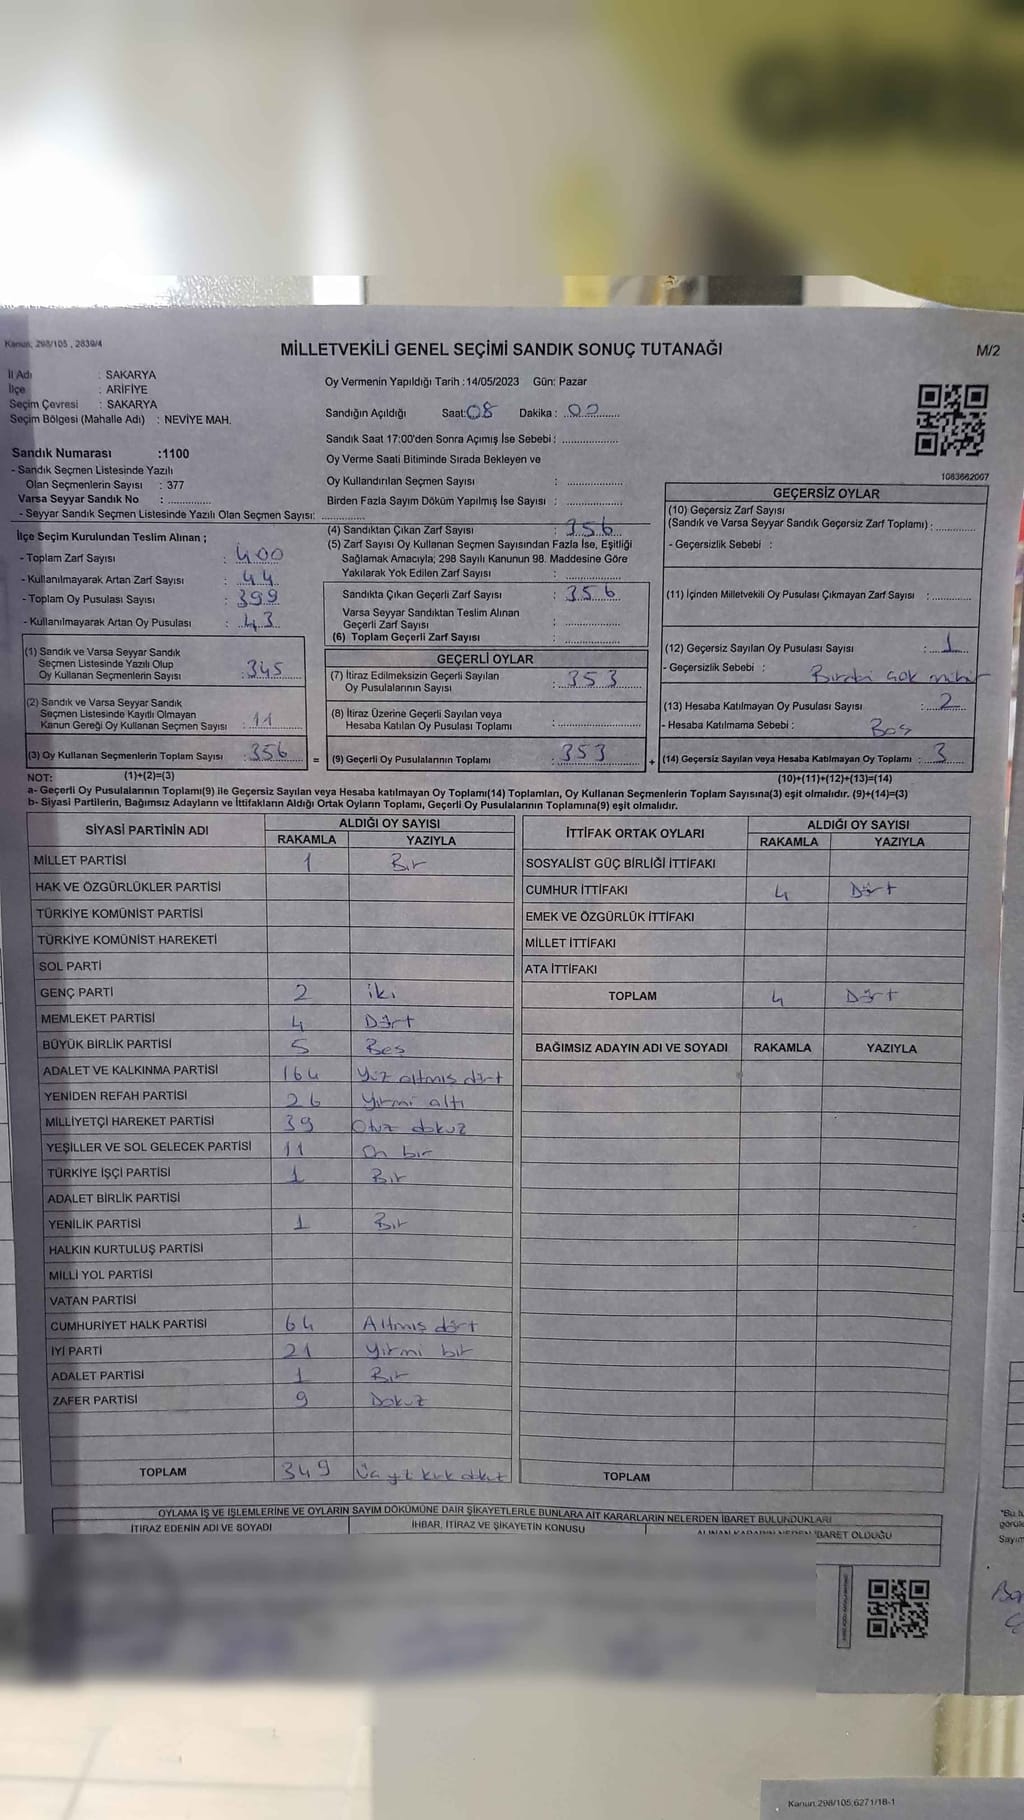 Kanun; 298/105 , 2839/4
MİLLETVEKİLİ GENEL SEÇİMİ SANDIK SONUÇ TUTANAĞI
M/2
İl Adı : SAKARYA
İlçe : ARİFİYE
Seçim Çevresi : SAKARYA
Seçim Bölgesi (Mahalle Adı) : NEVİYE MAH.
Sandık Numarası :1100
- Sandık Seçmen Listesinde Yazılı
Olan Seçmenlerin Sayısı : 377
Varsa Seyyar Sandık No :
- Seyyar Sandık Seçmen Listesinde Yazılı Olan Seçmen Sayısı:
Oy Vermenin Yapıldığı Tarih :14/05/2023 Gün: Pazar
Sandığın Açıldığı Saat:08 Dakika : 00
Sandık Saat 17:00'den Sonra Açımış İse Sebebi :
Oy Verme Saati Bitiminde Sırada Bekleyen ve
Oy Kullandırılan Seçmen Sayısı :
Birden Fazla Sayım Döküm Yapılmış İse Sayısı :
1083662007
İlçe Seçim Kurulundan Teslim Alınan ;
- Toplam Zarf Sayısı : 400
- Kullanılmayarak Artan Zarf Sayısı : 44
- Toplam Oy Pusulası Sayısı : 399
- Kullanılmayarak Artan Oy Pusulası : 43
(1) Sandık ve Varsa Seyyar Sandık
Seçmen Listesinde Yazılı Olup
Oy Kullanan Seçmenlerin Sayısı : 345
(2) Sandık ve Varsa Seyyar Sandık
Seçmen Listesinde Kayıtlı Olmayan
Kanun Gereği Oy Kullanan Seçmen Sayısı : 11
(3) Oy Kullanan Seçmenlerin Toplam Sayısı : 356 =
(4) Sandıktan Çıkan Zarf Sayısı : 356
(5) Zarf Sayısı Oy Kullanan Seçmen Sayısından Fazla İse, Eşitliği
Sağlamak Amacıyla; 298 Sayılı Kanunun 98. Maddesine Göre
Yakılarak Yok Edilen Zarf Sayısı :
Sandıkta Çıkan Geçerli Zarf Sayısı : 356
Varsa Seyyar Sandıktan Teslim Alınan
Geçerli Zarf Sayısı :
(6) Toplam Geçerli Zarf Sayısı :
GEÇERLİ OYLAR
(7) İtiraz Edilmeksizin Geçerli Sayılan
Oy Pusulalarının Sayısı : 353
(8) İtiraz Üzerine Geçerli Sayılan veya
Hesaba Katılan Oy Pusulası Toplamı :
(9) Geçerli Oy Pusulalarının Toplamı : 353 +
GEÇERSİZ OYLAR
(10) Geçersiz Zarf Sayısı
(Sandık ve Varsa Seyyar Sandık Geçersiz Zarf Toplamı) :
- Geçersizlik Sebebi :
(11) İçinden Milletvekili Oy Pusulası Çıkmayan Zarf Sayısı :
(12) Geçersiz Sayılan Oy Pusulası Sayısı : 1
- Geçersizlik Sebebi :
(13) Hesaba Katılmayan Oy Pusulası Sayısı : 2
- Hesaba Katılmama Sebebi : Boş
(14) Geçersiz Sayılan veya Hesaba Katılmayan Oy Toplamı : 3
NOT: (1)+(2)=(3) (10)+(11)+(12)+(13)=(14)
a- Geçerli Oy Pusulalarının Toplamı(9) ile Geçersiz Sayılan veya Hesaba katılmayan Oy Toplamı(14) Toplamları, Oy Kullanan Seçmenlerin Toplam Sayısına(3) eşit olmalıdır. (9)+(14)=(3)
b- Siyasi Partilerin, Bağımsız Adayların ve İttifakların Aldığı Ortak Oyların Toplamı, Geçerli Oy Pusulalarının Toplamına(9) eşit olmalıdır.
SİYASİ PARTİNİN ADI ALDIĞI OY SAYISI
RAKAMLA YAZIYLA
MİLLET PARTİSİ 1 Bir
HAK VE ÖZGÜRLÜKLER PARTİSİ
TÜRKİYE KOMÜNİST PARTİSİ
TÜRKİYE KOMÜNİST HAREKETİ
SOL PARTİ
GENÇ PARTİ 2 iki
MEMLEKET PARTİSİ 4 Dört
BÜYÜK BİRLİK PARTİSİ 5 Beş
ADALET VE KALKINMA PARTİSİ 164 Yüz altmış dört
YENİDEN REFAH PARTİSİ 26 Yirmi altı
MİLLİYETÇİ HAREKET PARTİSİ 39 Otuz dokuz
YEŞİLLER VE SOL GELECEK PARTİSİ 11 On bir
TÜRKİYE İŞÇİ PARTİSİ 1 Bir
ADALET BİRLİK PARTİSİ
YENİLİK PARTİSİ 1 Bir
HALKIN KURTULUŞ PARTİSİ
MİLLİ YOL PARTİSİ
VATAN PARTİSİ
CUMHURİYET HALK PARTİSİ 64 Altmış dört
İYİ PARTİ 21 Yirmi bir
ADALET PARTİSİ 1 Bir
ZAFER PARTİSİ 9 Dokuz
TOPLAM 349 Üç yüz kırk dokuz
İTTİFAK ORTAK OYLARI ALDIĞI OY SAYISI
RAKAMLA YAZIYLA
SOSYALİST GÜÇ BİRLİĞİ İTTİFAKI
CUMHUR İTTİFAKI 4 Dört
EMEK VE ÖZGÜRLÜK İTTİFAKI
MİLLET İTTİFAKI
ATA İTTİFAKI
TOPLAM 4 Dört
BAĞIMSIZ ADAYIN ADI VE SOYADI RAKAMLA YAZIYLA
TOPLAM
OYLAMA İŞ VE İŞLEMLERİNE VE OYLARIN SAYIM DÖKÜMÜNE DAİR ŞİKAYETLERLE BUNLARA AİT KARARLARIN NELERDEN İBARET BULUNDUKLARI
İTİRAZ EDENİN ADI VE SOYADI İHBAR, İTİRAZ VE ŞİKAYETİN KONUSU İBARET OLDUĞU
Kanun:298/105;6271/18-1